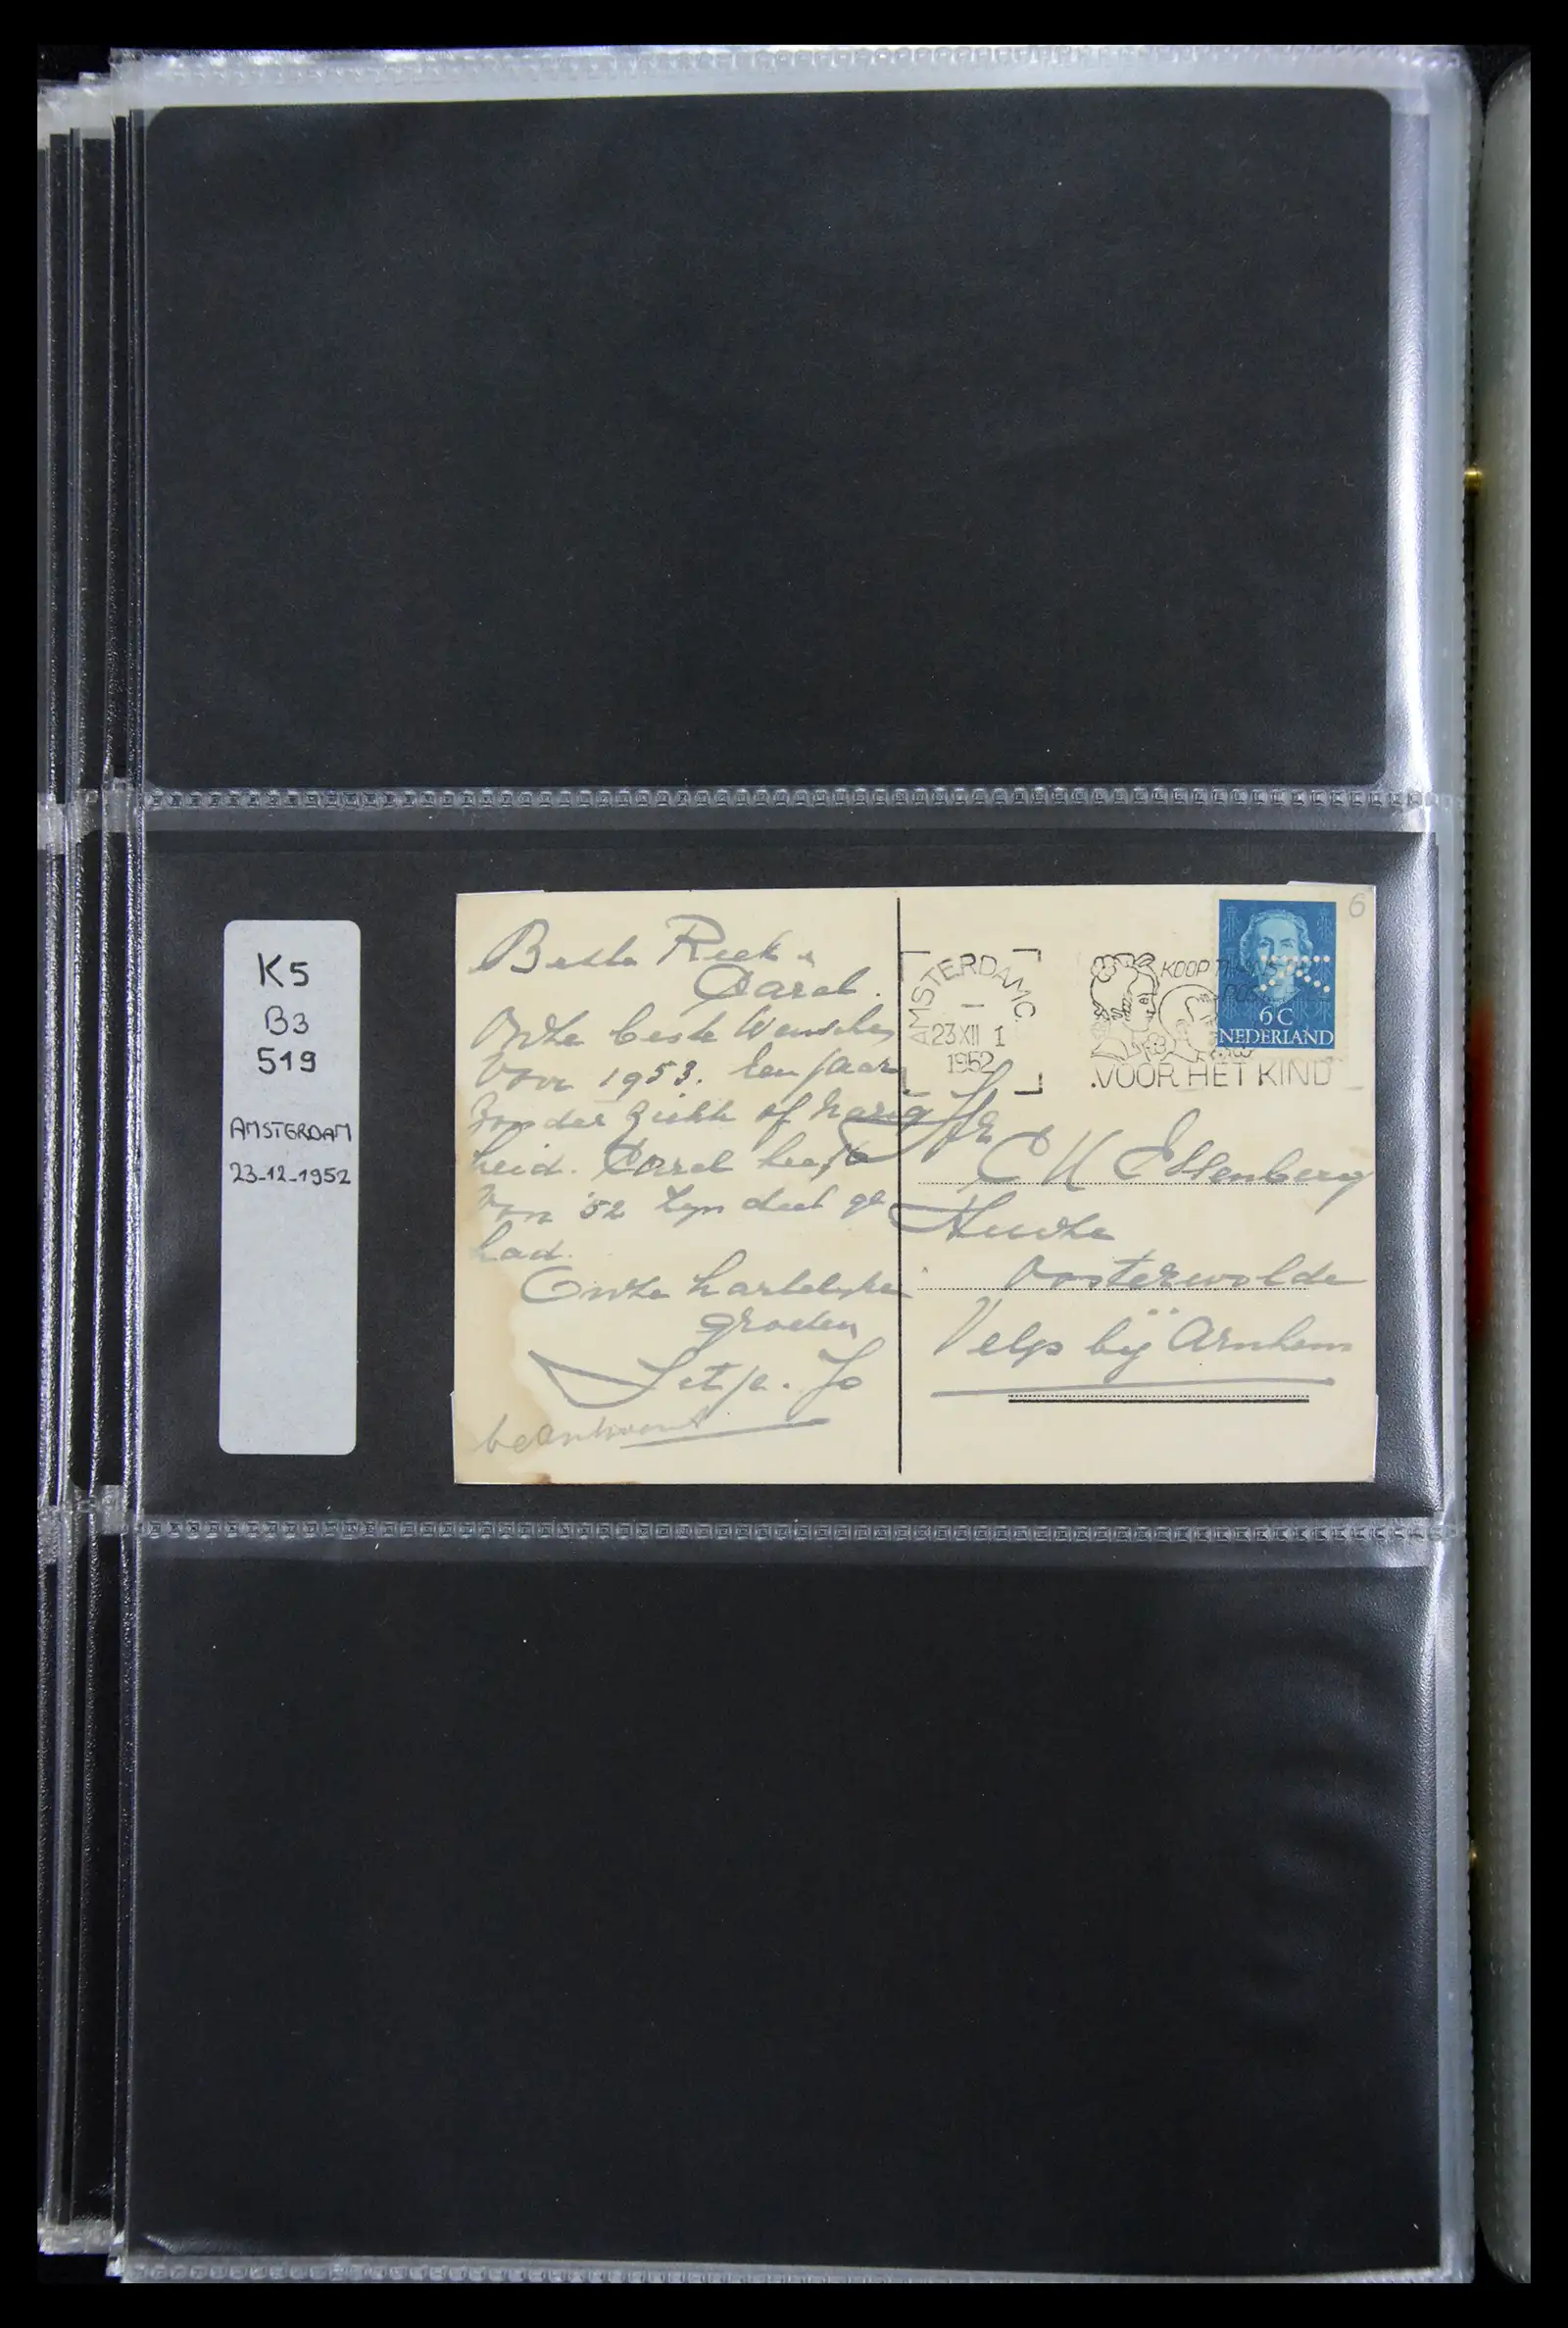 K5
B3
519
AMSTERDAM
23-12-1952
Beste Riek &
Carel.
Onze beste Wenschen
Voor 1953. Een jaar
Zonder Ziekte of Narig
heid. Carel heeft
Van '52 zyn deel ge
had.
Onze hartelyke
groeten
Jetje. Jo
beantwoord
AMSTERDAM C.
23 XII 1
1952
KOOP
VOOR HET KIND
6
6 C
NEDERLAND
C H Essenberg
Oosterwolde
Velp bÿ Arnhem